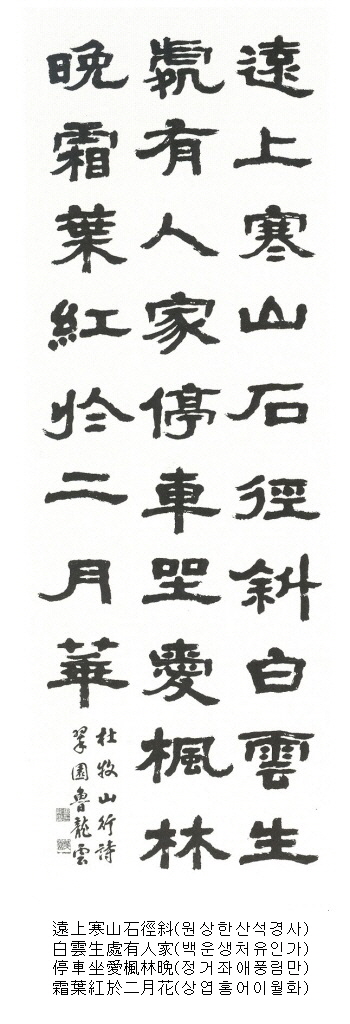 遠上寒山石徑斜白雲生
處有人家停車坐愛楓林
晩霜葉紅於二月華
杜牧山行詩
翠園魯龍雲
遠上寒山石徑斜(원상한산석경사)
白雲生處有人家(백운생처유인가)
停車坐愛楓林晩(정거좌애풍림만)
霜葉紅於二月花(상엽홍어이월화)